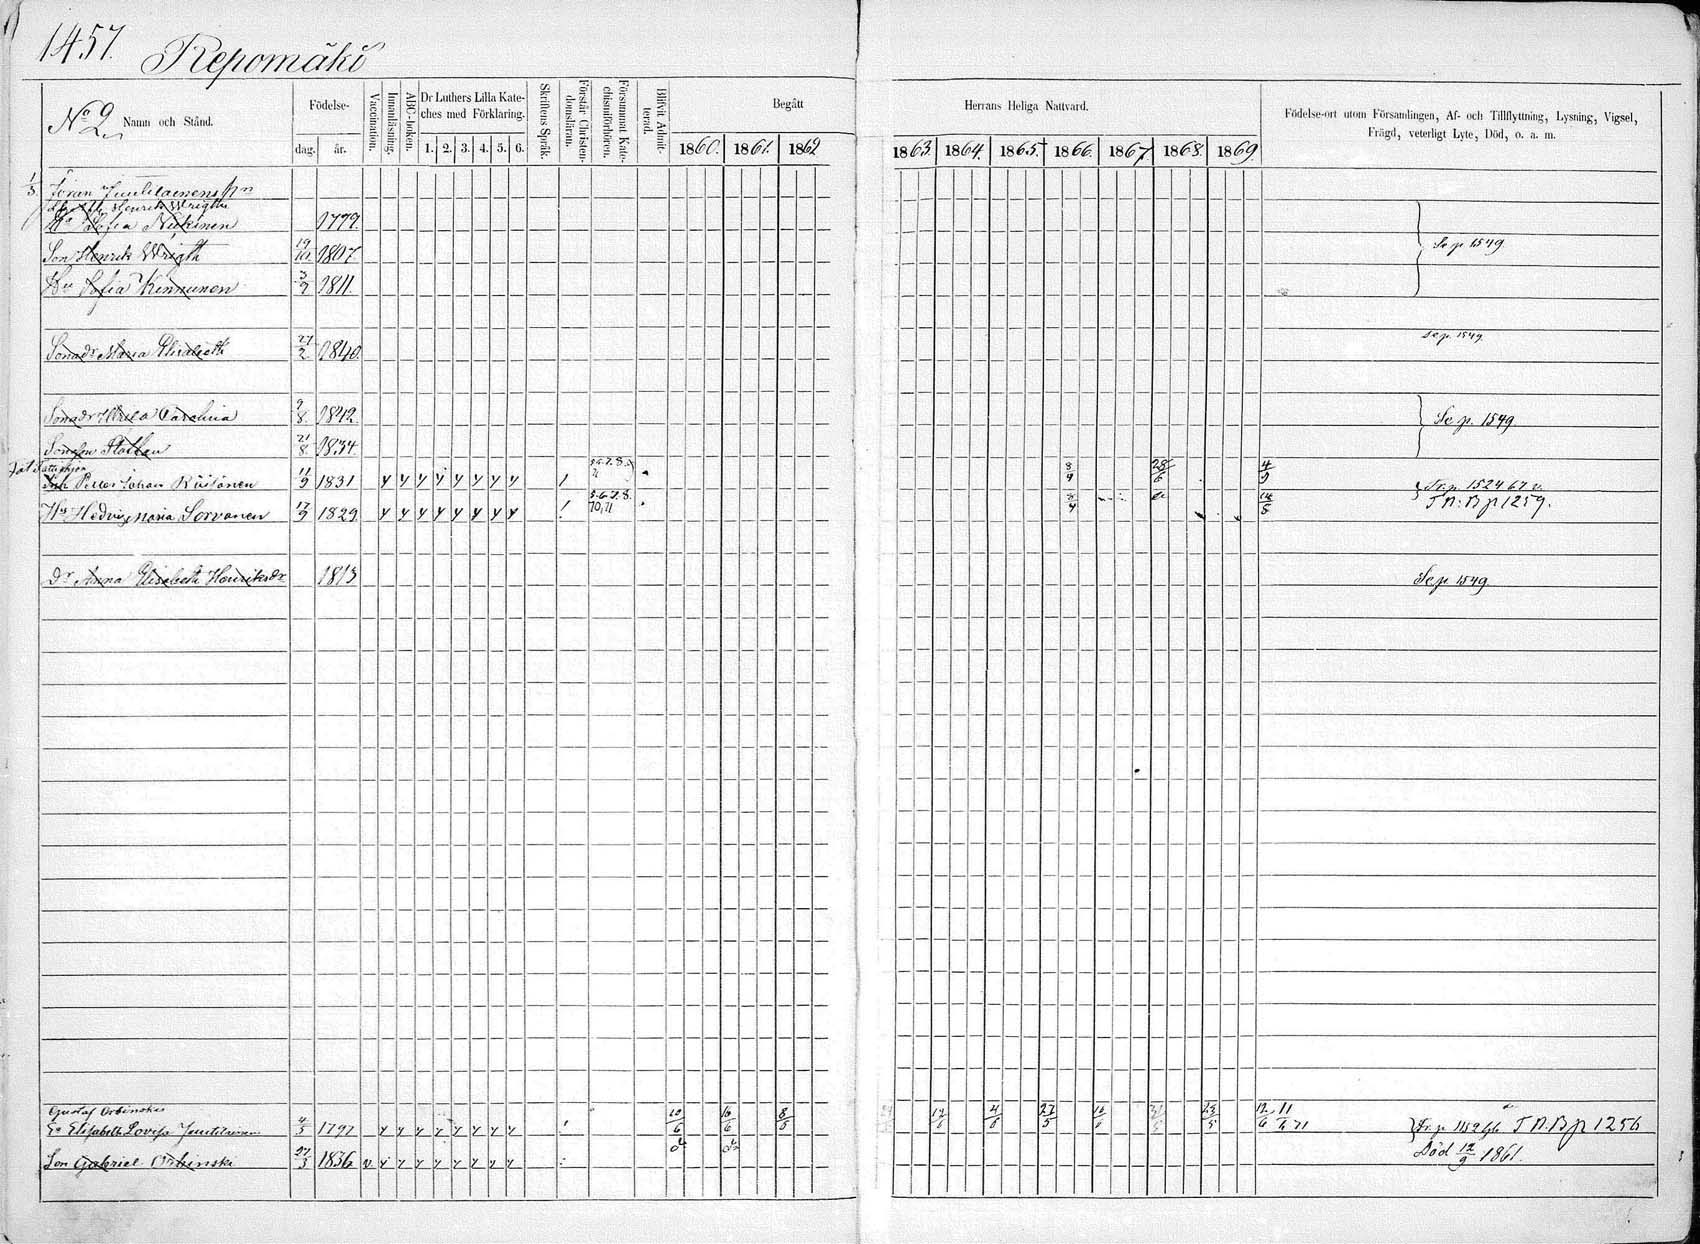 1457. Repomäki
No 9
2.
Namn och Stånd.
Födelse-
dag. år.
Vaccination.
Innanläsning.
ABC-boken.
Dr Luthers Lilla Kate-
ches med Förklaring.
1. 2. 3. 4. 5. 6.
Skriftens Språk.
Förstår Christen-
domsläran.
Försummat Kate-
chismiförhören.
Blifvit Admit-
terad.
Begått
1860. 1861. 1862
Herrans Heliga Nattvard.
1863. 1864. 1865. 1866. 1867. 1868. 1869.
Födelse-ort utom Församlingen, Af- och Tillflyttning, Lysning, Vigsel,
Frägd, veterligt Lyte, Död, o. a. m.
1/3 Göran Juutilainens
Henrik Wrigth
Sofia Nickinen 1779.
Son Henrik Wrigth 19/10 1807. Se p. 1549
Hu Sofia Kinnunen 3/9 1811.
Sonadr Maria Elisabeth 27/2 1840. Se p. 1549
Sonadr Ulrica Carolina 9/8. 1842. Se p. 1549
Sonason Staffan 21/8. 1834.
Petter Johan Räisänen 11/9 1831 y y y y y y y y 5.6.7.8. 11 8/4 28/6 4/9 Fr. p. 1524 67 v.
Hu Hedvig Maria Sorvanen 17/9 1829 y y y y y y y y 5.6.7.8. 10,11 8/4 14/8 T N:B p 1259.
Dr Anna Elisabeth Henriksdr 1813 Se p. 1549.
Gustaf Orbinskis
Ea Elisabeth Lovisa Juutilainen 4/3 1797 y y y y y y y y 10/6 16/6 8/5 4/6 27/5 23/5 12/6 11/6 71 Fr. p. 1152 T N:B p 1256
Son Gabriel Orbinski 27/3 1836 v y y y y y y y y Död 12/9 1861.